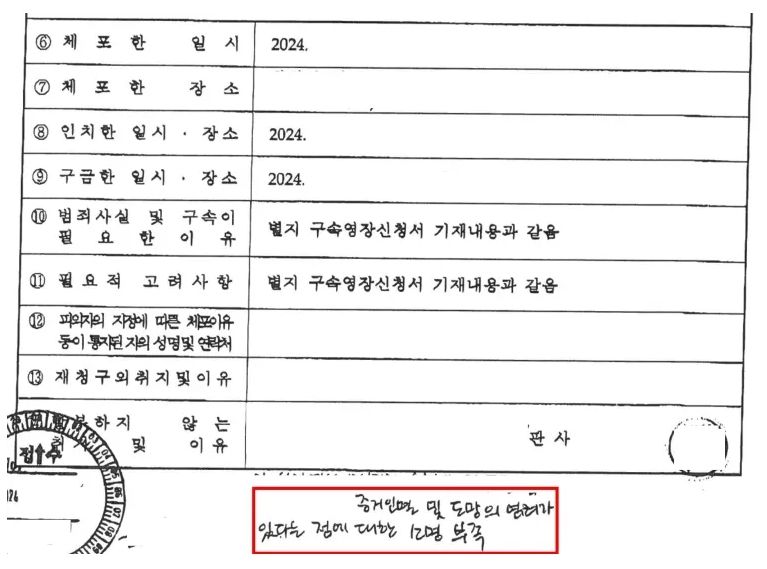 ⑥ 체 포 한 일 시 2024.
⑦ 체 포 한 장 소
⑧ 인치한 일시 · 장소 2024.
⑨ 구금한 일시 · 장소 2024.
⑩ 범죄사실 및 구속이
필 요 한 이 유
별지 구속영장신청서 기재내용과 같음
⑪ 필요적 고려사항 별지 구속영장신청서 기재내용과 같음
⑫ 피의자의 지정에 따른 체포이유
등이 통지된 자의 성명 및 연락처
⑬ 재청구의 취지 및 이유
하지 않는
및 이유
판 사
접 수
증거인멸 및 도망의 염려가
있다는 점에 대한 소명 부족